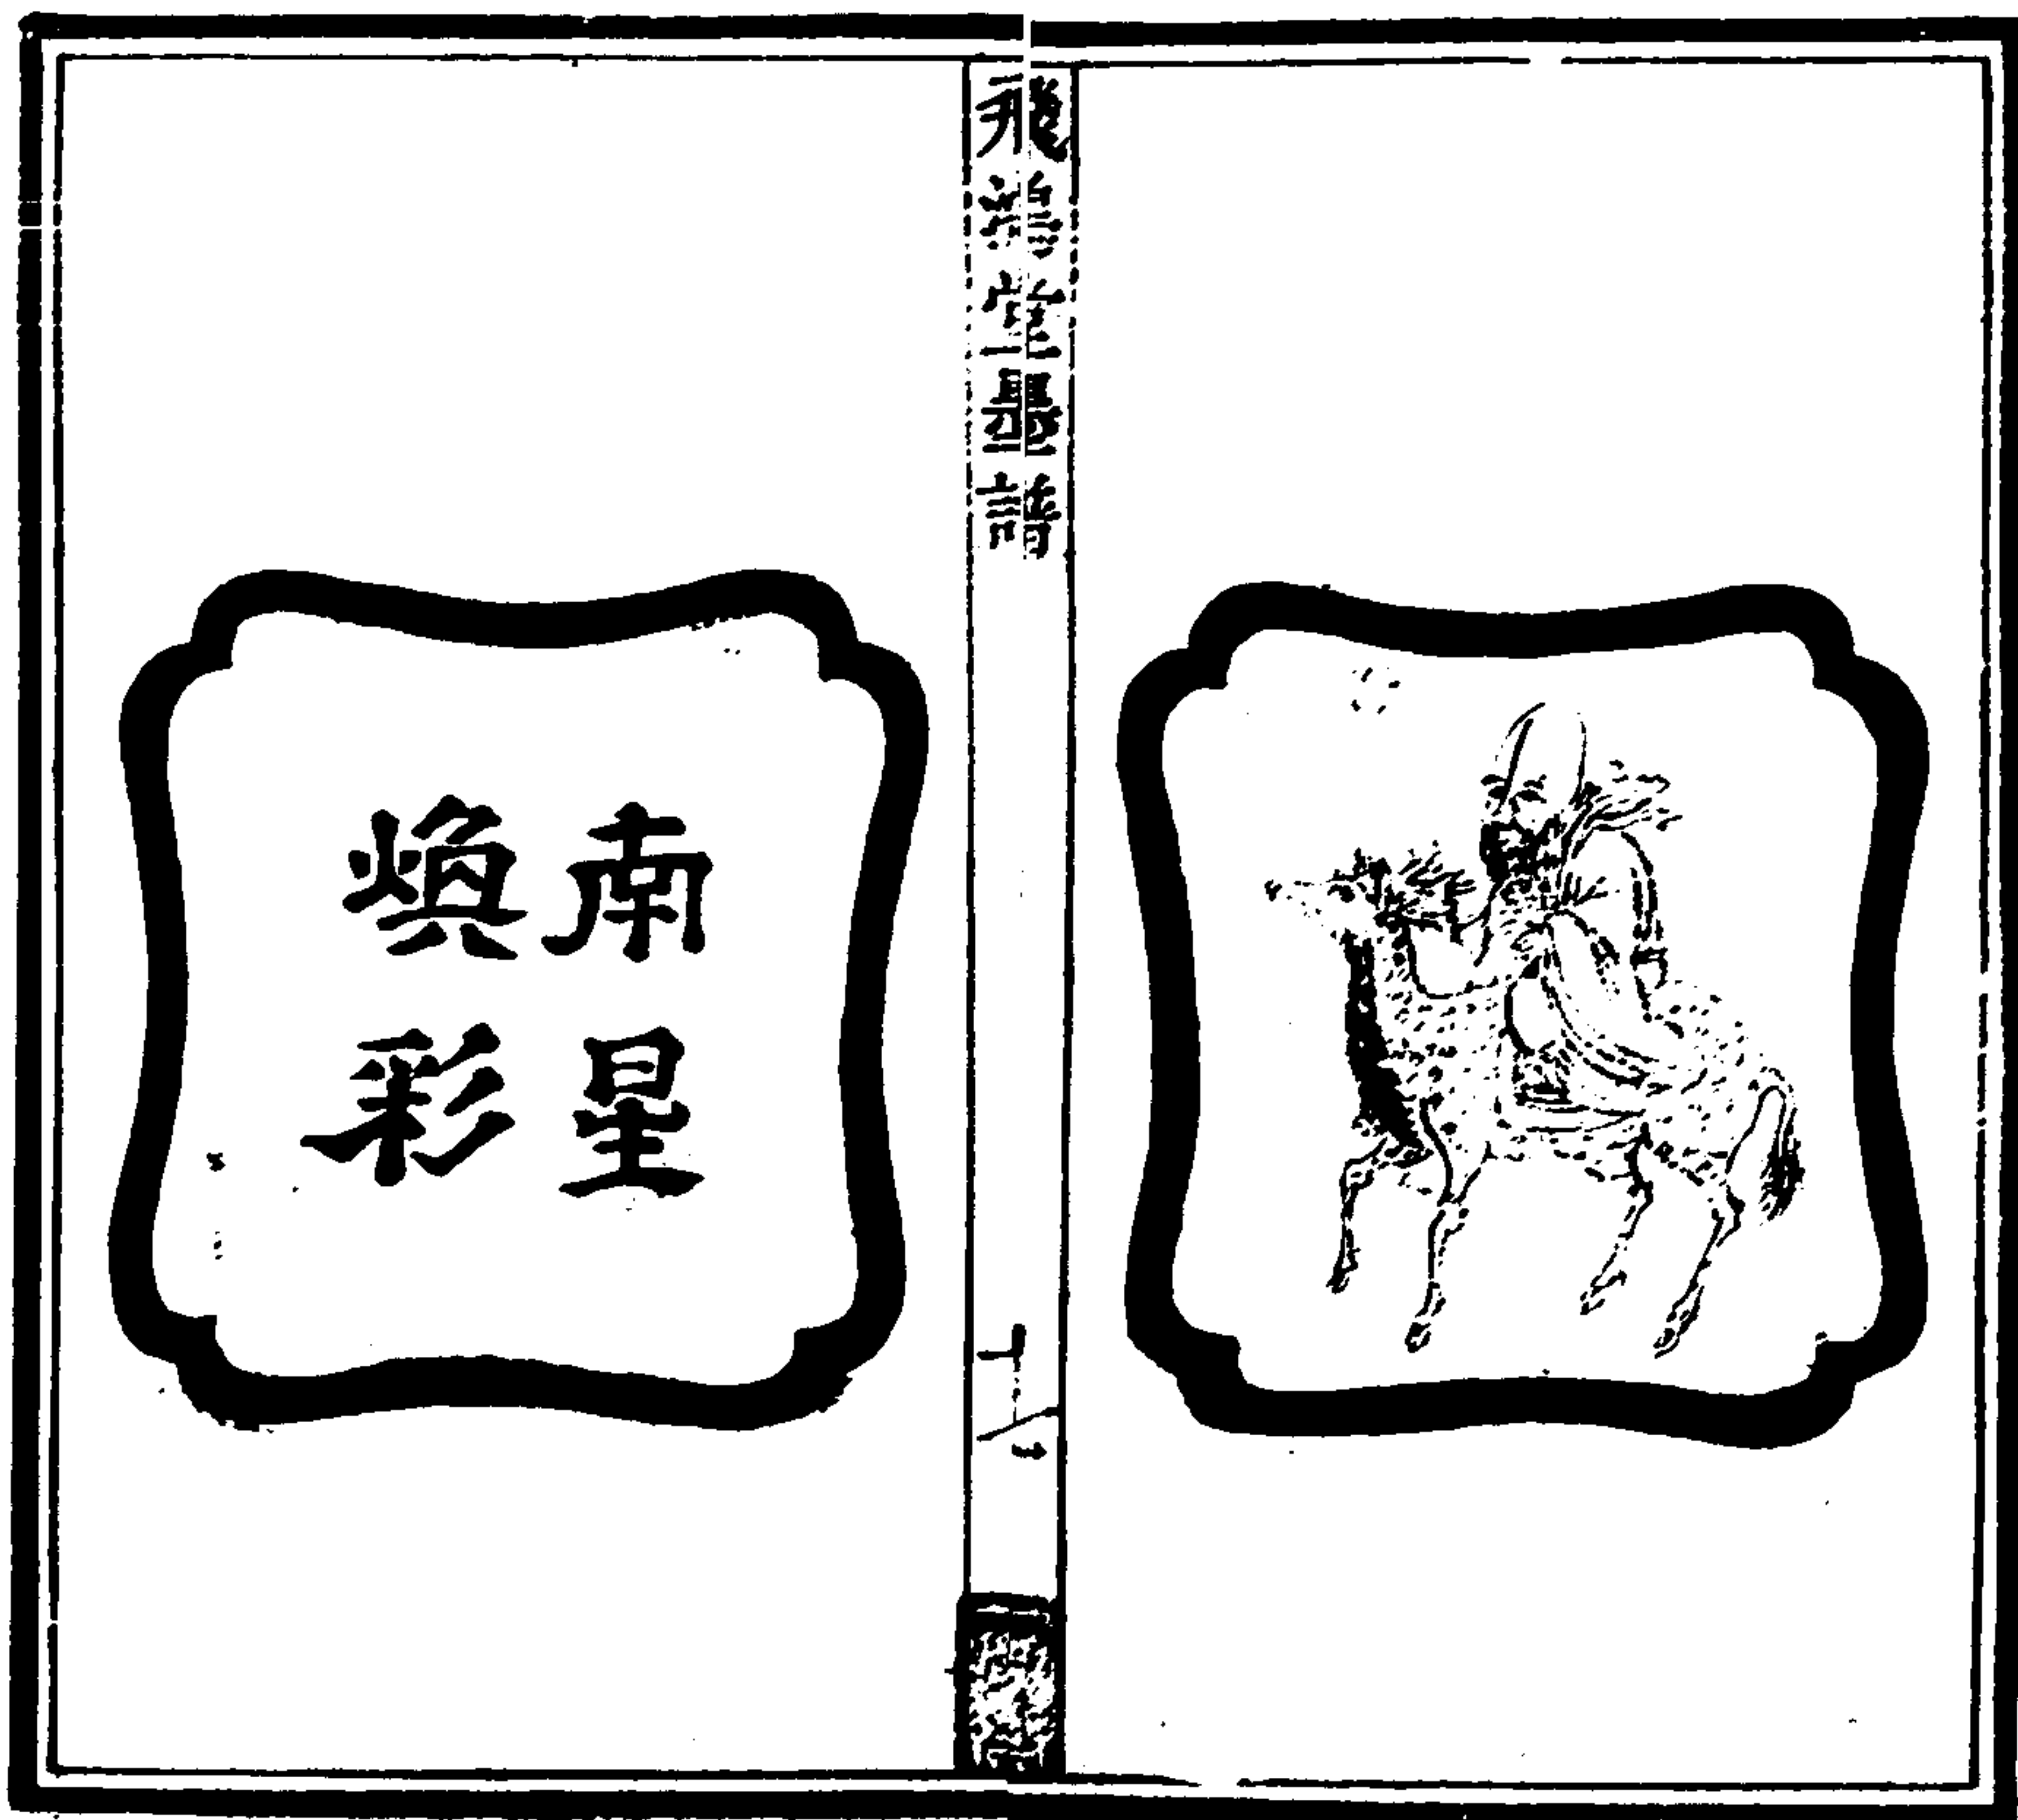 飛鴻堂墨譜
南星
煥彩